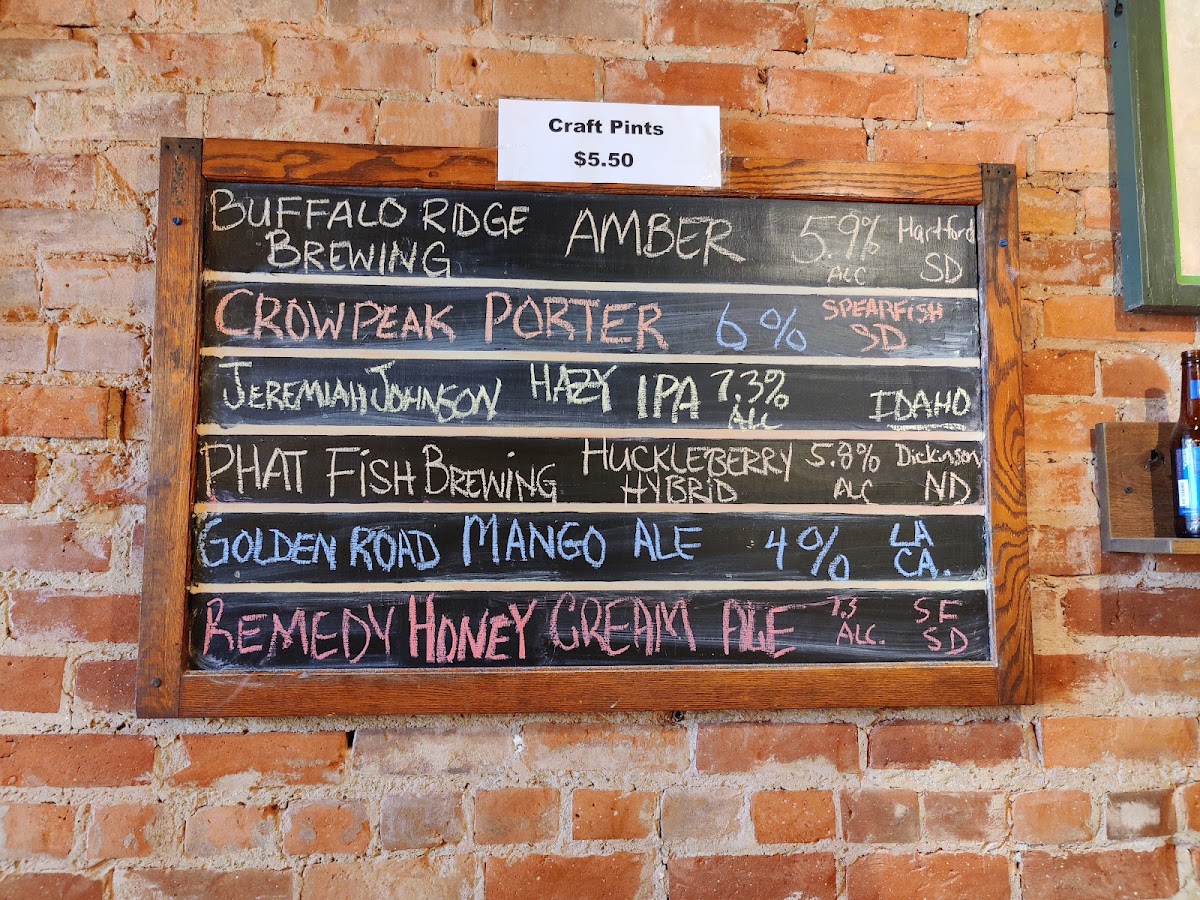 Craft Pints
$5.50
BUFFALO RIDGE BREWING AMBER 5.9% ALC Hartford SD
CROWPEAK PORTER 6% SPEARFISH SD
JEREMIAH JOHNSON HAZY IPA 7.3% ALC IDAHO
PHAT FISH BREWING HUCKLEBERRY HYBRID 5.8% ALC Dickinson ND
GOLDEN ROAD MANGO ALE 4% LA CA.
REMEDY HONEY CREAM ALE 7.3 ALC. SF SD